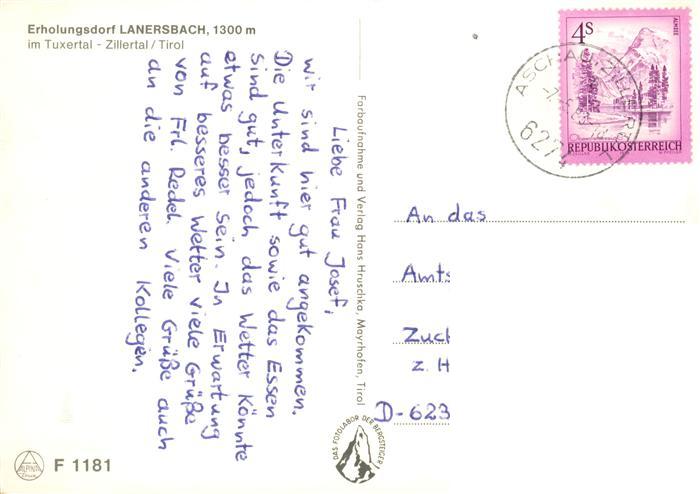 Erholungsdorf LANERSBACH, 1300 m
im Tuxertal - Zillertal / Tirol
Liebe Frau Josef,
wir sind hier gut angekommen.
Die Unterkunft sowie das Essen
sind gut, jedoch das Wetter könnte
etwas besser sein. In Erwartung
auf besseres Wetter viele Grüße
von Frl. Redel. Viele Grüße auch
an die anderen Kollegen.
Farbaufnahme und Verlag Hans Hruschka, Mayrhofen, Tirol
4S
ALMSEE
REPUBLIK ÖSTERREICH
ASCHAU
6274
An das
Amts
Zuch
z. H
D-623
DAS FOTOLABOR DER BERGSTEIGER
ALPINA
F 1181